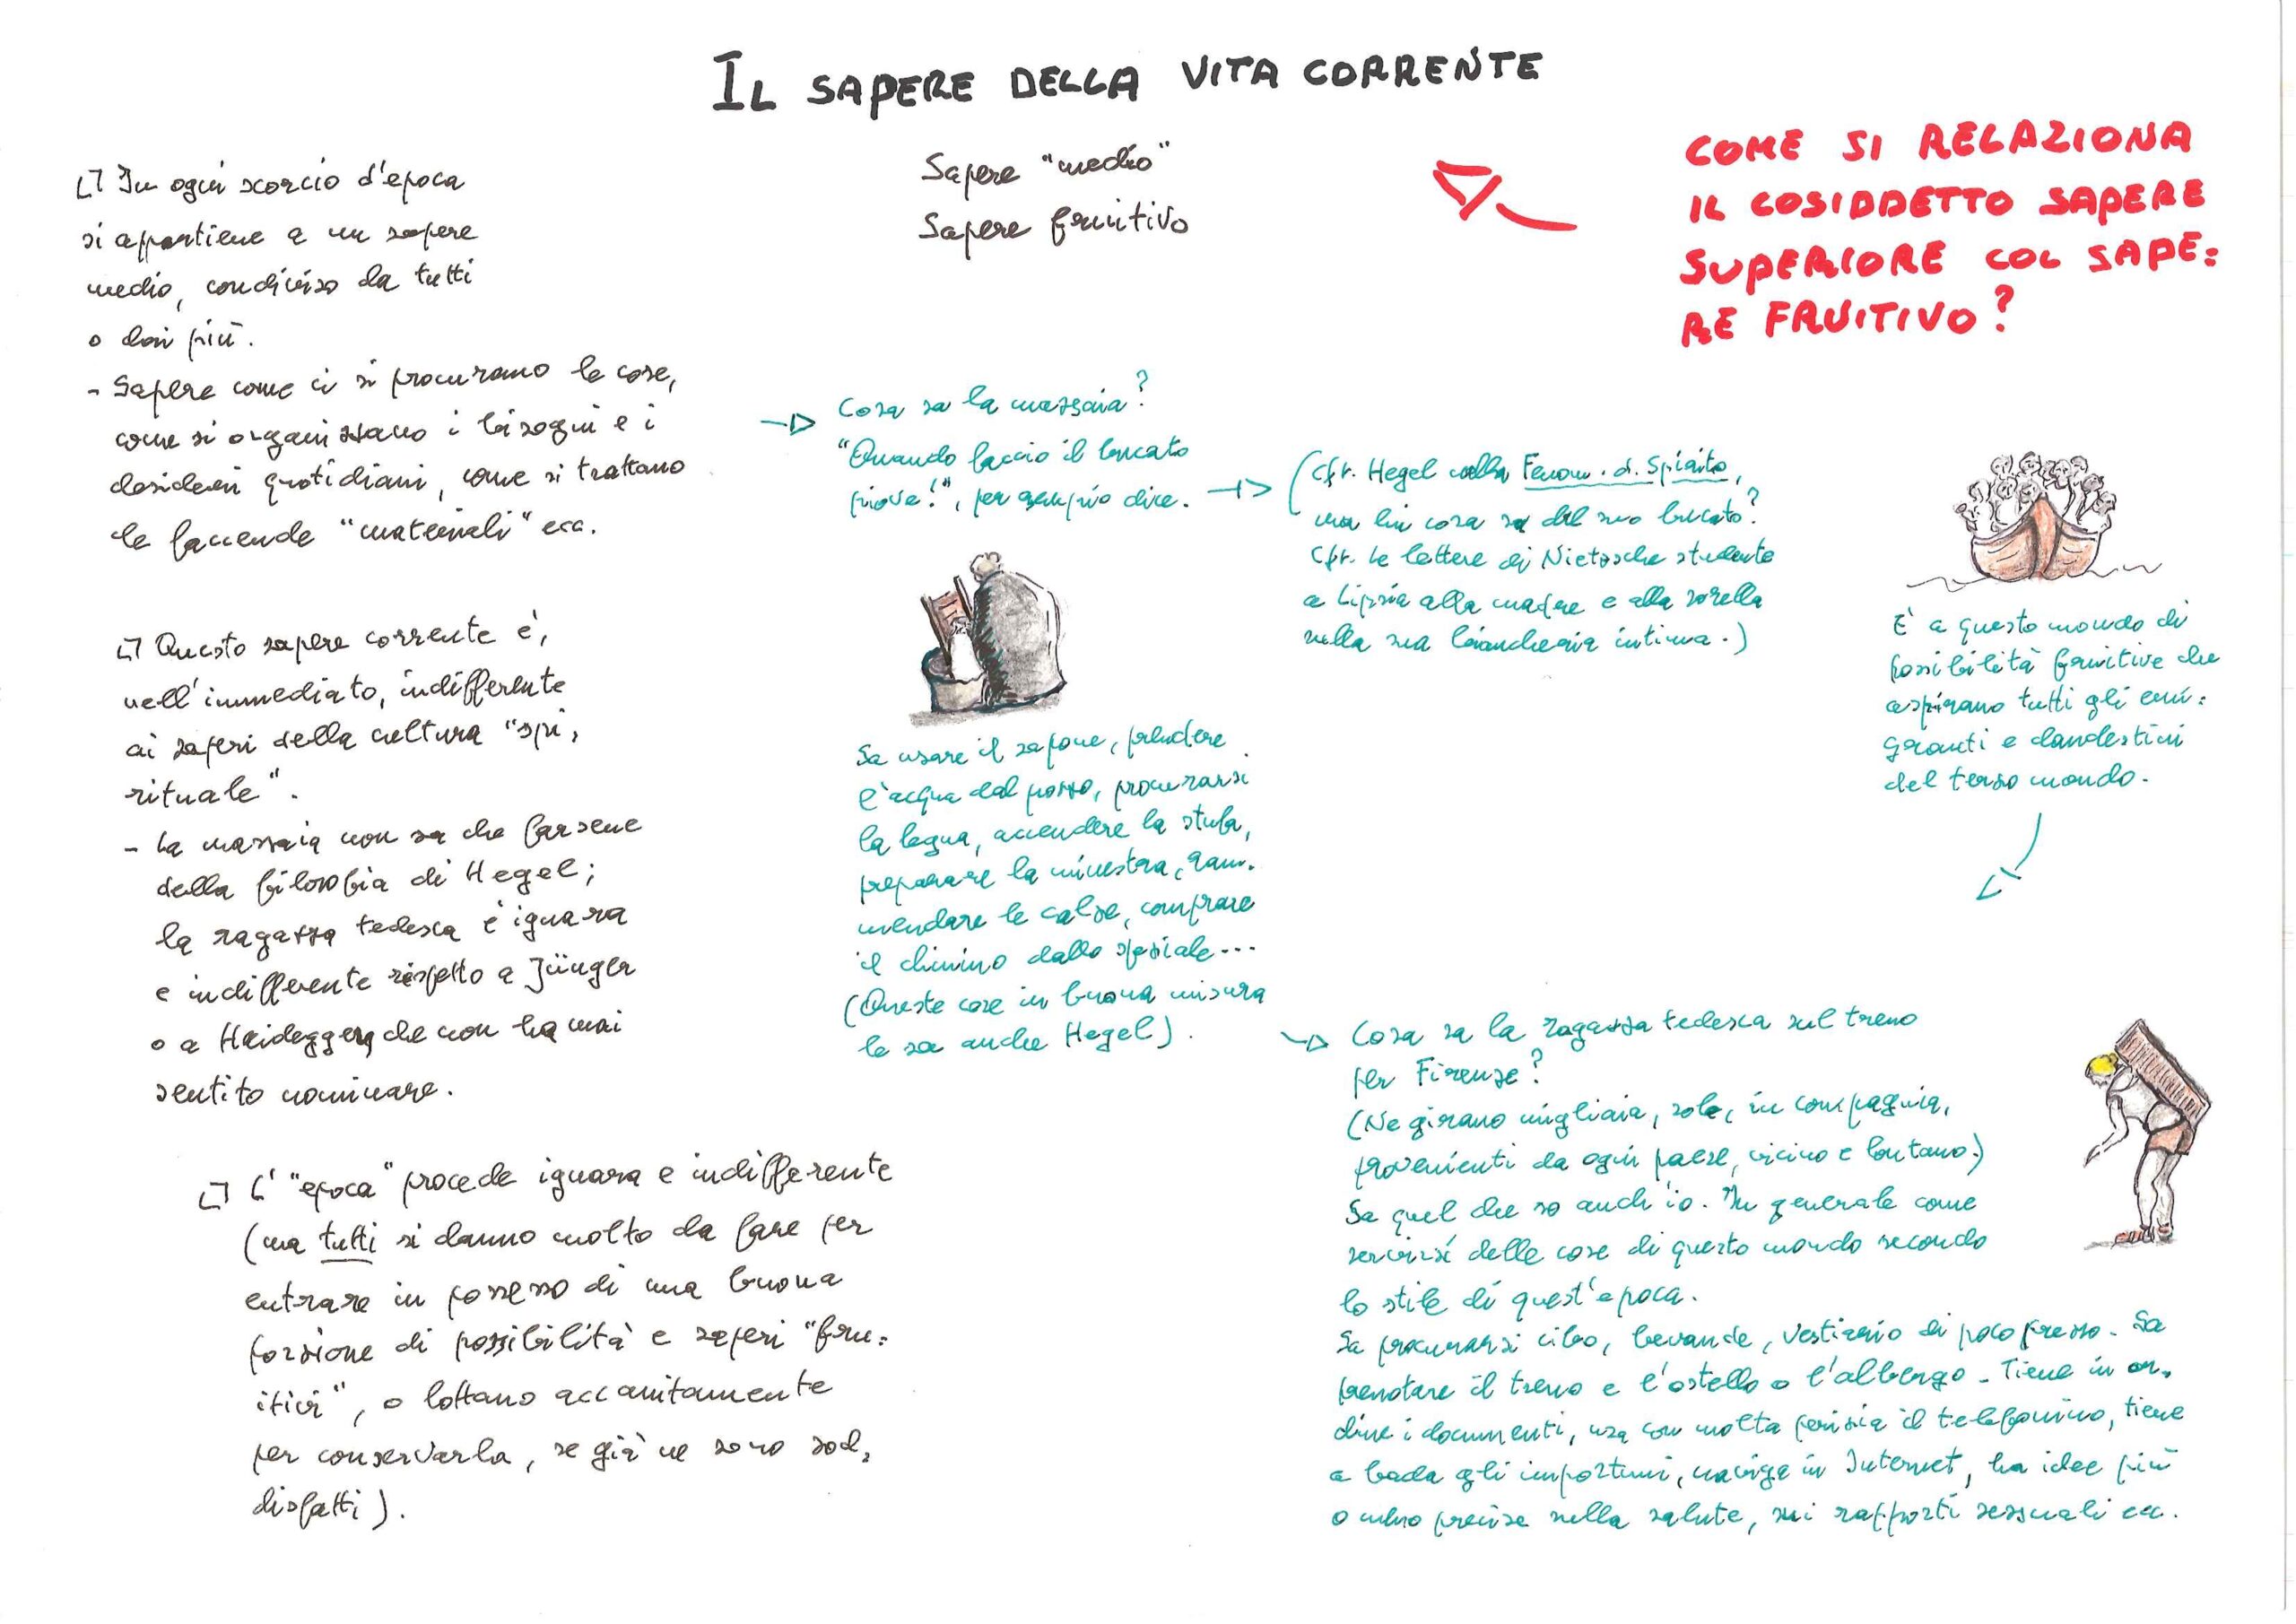 IL SAPERE DELLA VITA CORRENTE
Sapere "medio"
Sapere fruitivo
COME SI RELAZIONA
IL COSIDDETTO SAPERE
SUPERIORE COL SAPE=
RE FRUITIVO?
In ogni scorcio d'epoca
si appartiene a un sapere
medio, condiviso da tutti
o dai più.
- Sapere come ci si procurano le cose,
come si organizzano i bisogni e i
desideri quotidiani, come si trattano
le faccende "materiali" ecc.
Questo sapere corrente è,
nell'immediato, indifferente
ai saperi della cultura "spi,
rituale".
- La massaia non sa che farsene
della filosofia di Hegel;
la ragazza tedesca è ignara
e indifferente rispetto a Jünger
o a Heidegger, che non ha mai
sentito nominare.
L'"epoca" procede ignara e indifferente
(ma tutti si danno molto da fare per
entrare in possesso di una buona
porzione di possibilità e saperi "fru=
itivi", o lottano accanitamente
per conservarla, se già ne sono sod,
disfatti).
Cosa sa la massaia?
"Quando faccio il bucato
piove!", per esempio dice.
(Cfr. Hegel nella Fenom. d. Spirito,
ma lui cosa sa del suo bucato?
Cfr. le lettere di Nietzsche studente
a Lipsia alla madre e alla sorella
sulla sua biancheria intima.)
Sa usare il sapone, prendere
l'acqua dal pozzo, procurarsi
la legna, accendere la stufa,
preparare la minestra, ram.
mendare le calze, comprare
il chinino dallo speziale...
(Queste cose in buona misura
le sa anche Hegel).
È a questo mondo di
possibilità fruitive che
aspirano tutti gli emi=
granti e clandestini
del terzo mondo.
Cosa sa la ragazza tedesca sul treno
per Firenze?
(Ne girano migliaia, sole, in compagnia,
provenienti da ogni paese, vicino e lontano.)
Sa quel che so anch'io. In generale come
servirsi delle cose di questo mondo secondo
lo stile di quest'epoca.
Sa procurarsi cibo, bevande, vestiario di poco prezzo. Sa
prenotare il treno e l'ostello o l'albergo. Tiene in or,
dine i documenti, usa con molta perizia il telefonino, tiene
a bada gli importuni, naviga in Internet, ha idee più
o meno precise sulla salute, sui rapporti sessuali ecc.